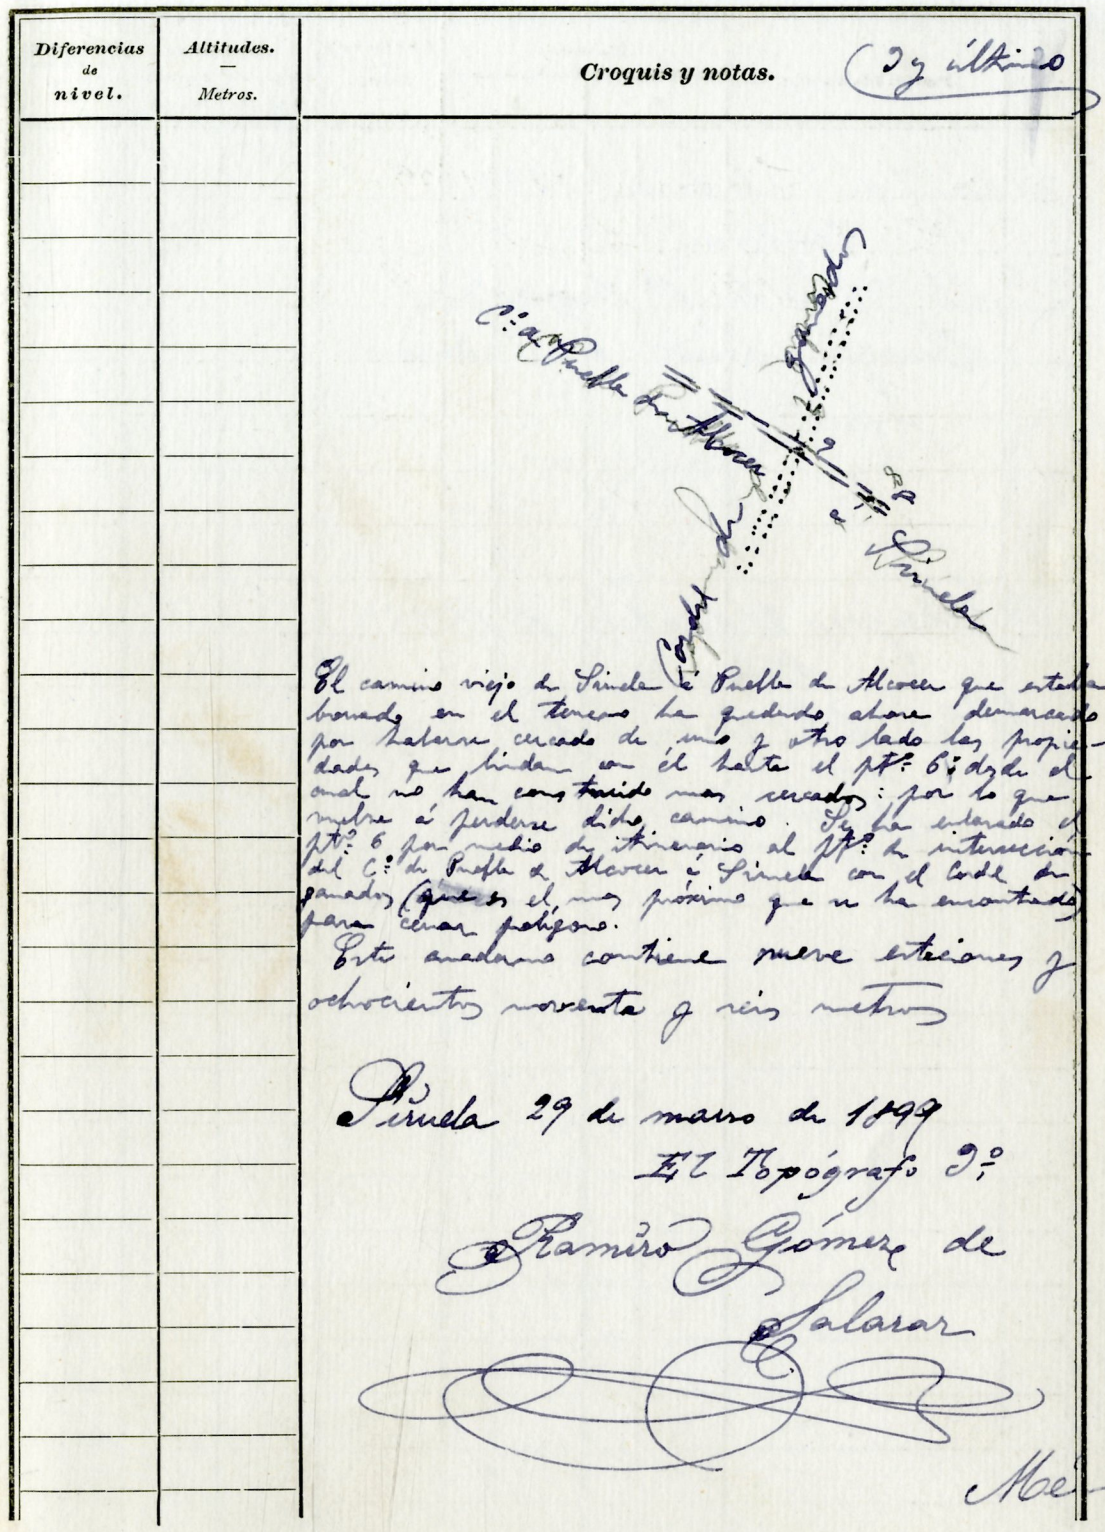 Diferencias
de
nivel.
Altitudes.
—
Metros.
Croquis y notas.
(2 y último
C.º de Puebla de Alcocer
ganados
Cordel de
9
88
a Siruela
El camino viejo de Siruela á Puebla de Alcocer que estaba
borrado en el terreno ha quedado ahora demarcado
por haberse cercado de uno y otro lado las propie-
dades que lindan con él hasta el pt.º 6: desde el
cual no han construido mas cercados: por lo que
vuelve á perderse dicho camino. Se ha enlazado el
pt.º 6 por medio de itinerario al pt.º de intersección
del C.º de Puebla de Alcocer á Siruela con el Cordel de
ganados (que es el mas próximo que se ha encontrado)
para cerrar polígono.
Este cuaderno contiene nueve estaciones y
ochocientos noventa y seis metros
Siruela 29 de marzo de 1899
El Topógrafo 2.º
Ramiro Gómez de
Salazar